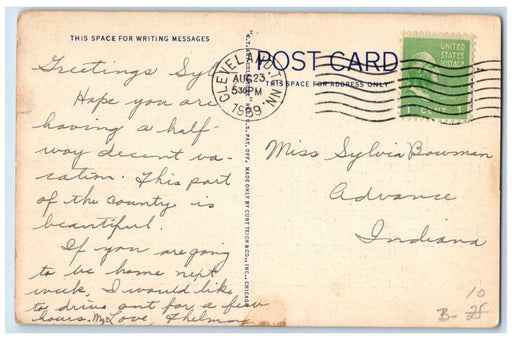 THIS SPACE FOR WRITING MESSAGES
Greetings Syl
Hope you are
having a half-
way decent va-
cation. This part
of the county is
beautiful.
If you are going
to be home next
week, I would like
to drive out for a few
hours. My Love, Thelma
MADE ONLY BY CURT TEICH & CO., INC., CHICAGO
U.S. PAT. OFF.
CLEVELAND, TENN.
AUG 23
530PM
1939
POST CARD
THIS SPACE FOR ADDRESS ONLY
UNITED
STATES
POSTAGE
1 CENT
Miss Sylvia Bowman
Advance
Indiana
10
B-25